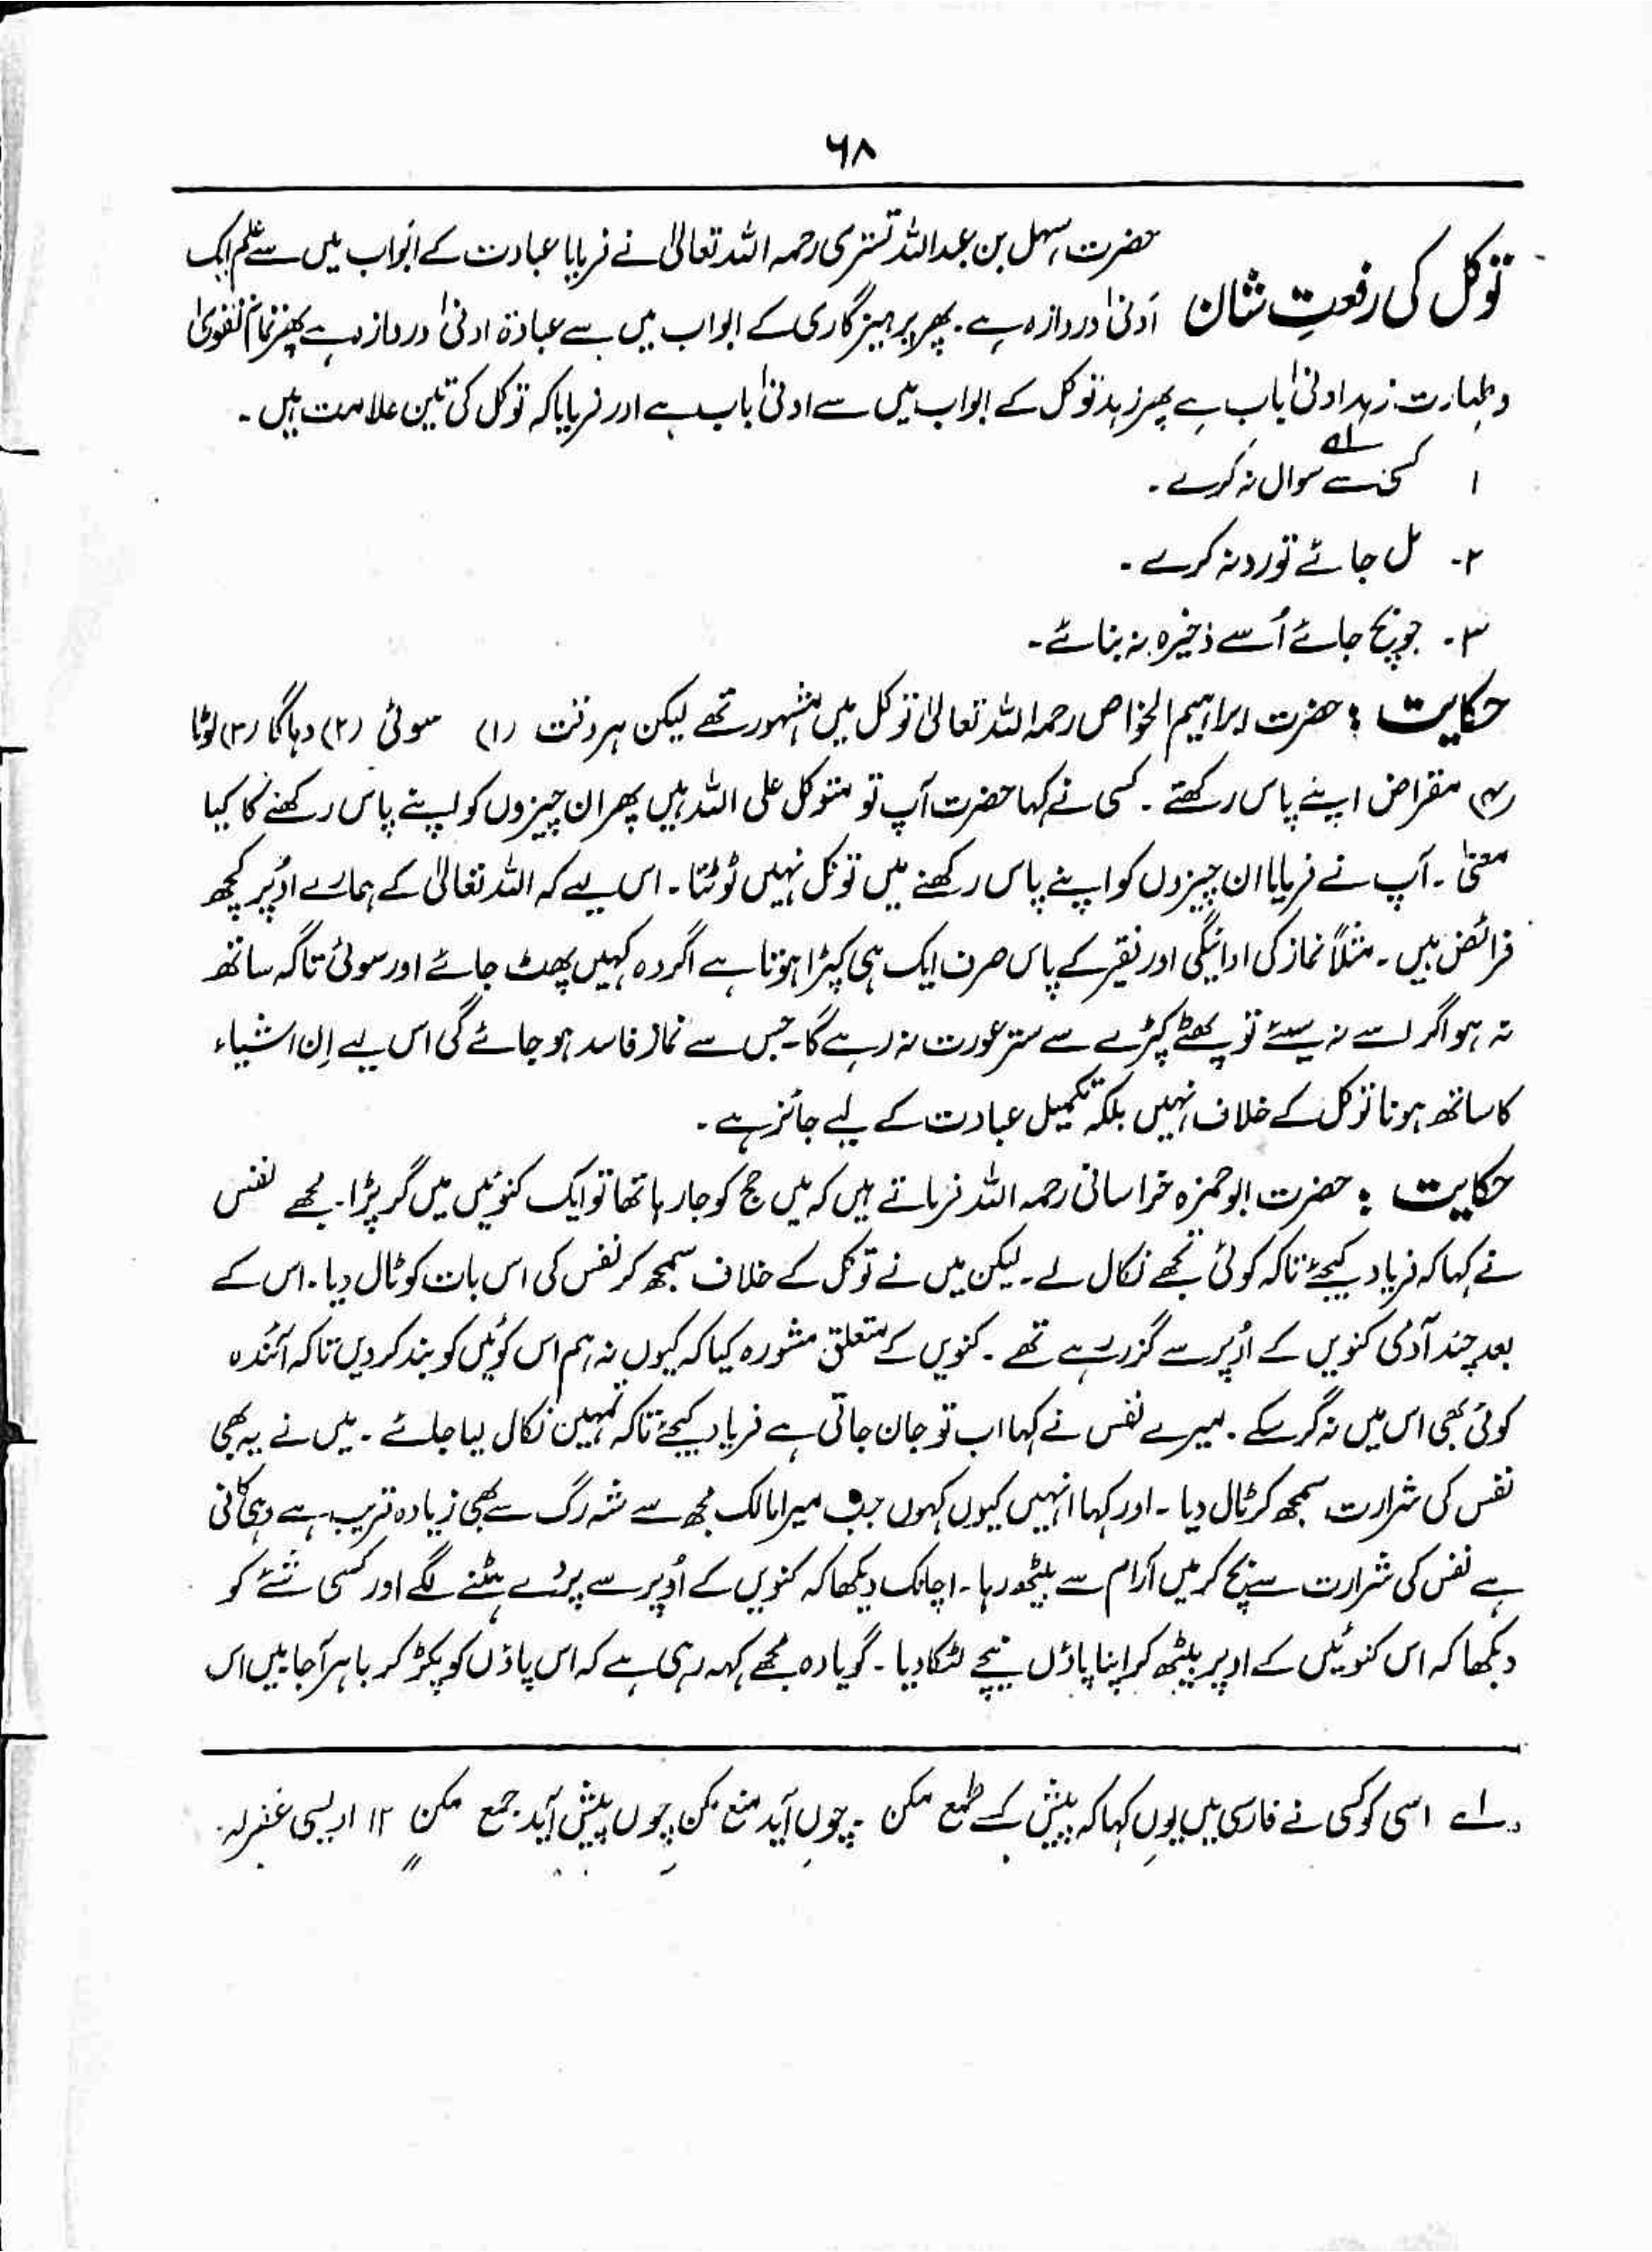 ۶۸
توکل کی رفعتِ شان
حضرت سہل بن عبداللہ تستری رحمہ اللہ تعالیٰ نے فرمایا عبادت کے ابواب میں سے علم ایک
اَدنیٰ دروازہ ہے۔ پھر پرہیزگاری کے ابواب میں سے عبادۃ ادنیٰ دروازہ ہے پھر تمام تقویٰ
و طہارت زہد ادنیٰ باب ہے پھر زہد توکل کے ابواب میں سے ادنیٰ باب ہے اور فرمایا کہ توکل کی تین علامت ہیں۔
۱ کسی سے سوال نہ کرے۔ لہ
۲۔ مل جائے تو رد نہ کرے۔
۳۔ جو بچ جائے اُسے ذخیرہ نہ بنائے۔
حکایت : حضرت ابراہیم الخواص رحمہ اللہ تعالیٰ توکل میں مشہور تھے لیکن ہر وقت (۱) سوئی (۲) دہاگا (۳) لوٹا
(۴) مقراض اپنے پاس رکھتے۔ کسی نے کہا حضرت آپ تو متوکل علی اللہ ہیں پھر ان چیزوں کو اپنے پاس رکھنے کا کیا
معنیٰ۔ آپ نے فرمایا ان چیزوں کو اپنے پاس رکھنے میں توکل نہیں ٹوٹتا۔ اس لیے کہ اللہ تعالیٰ کے ہمارے اُوپر کچھ
فرائض ہیں۔ مثلاً نماز کی ادائیگی اور فقیر کے پاس صرف ایک ہی کپڑا ہوتا ہے اگر وہ کہیں پھٹ جائے اور سوئی تاگہ ساتھ
نہ ہو اگر اسے نہ سیئے تو پھٹے کپڑے سے ستر عورت نہ رہے گا۔ جس سے نماز فاسد ہو جائے گی اس لیے اِن اشیاء
کا ساتھ ہونا توکل کے خلاف نہیں بلکہ تکمیل عبادت کے لیے جائز ہے۔
حکایت : حضرت ابوحمزہ خراسانی رحمہ اللہ فرماتے ہیں کہ میں حج کو جا رہا تھا تو ایک کنوئیں میں گر پڑا۔ مجھے نفس
نے کہا کہ فریاد کیجئے تاکہ کوئی تجھے نکال لے۔ لیکن میں نے توکل کے خلاف سمجھ کر نفس کی اس بات کو ٹال دیا۔ اس کے
بعد چند آدمی کنویں کے اُوپر سے گزر رہے تھے۔ کنویں کے متعلق مشورہ کیا کہ کیوں نہ ہم اس کوئیں کو بند کر دیں تاکہ آئندہ
کوئی بھی اس میں نہ گر سکے۔ میرے نفس نے کہا اب تو جان جاتی ہے فریاد کیجئے تاکہ تمہیں نکال لیا جائے۔ میں نے یہ بھی
نفس کی شرارت سمجھ کر ٹال دیا۔ اور کہا انہیں کیوں کہوں جب میرا مالک مجھ سے شہ رگ سے بھی زیادہ قریب ہے وہی کافی
ہے نفس کی شرارت سے بچ کر میں آرام سے بیٹھ رہا۔ اچانک دیکھا کہ کنویں کے اُوپر سے پردے ہٹنے لگے اور کسی شئے کو
دیکھا کہ اس کنوئیں کے اوپر بیٹھ کر اپنا پاؤں نیچے لٹکا دیا۔ گویا وہ مجھے کہہ رہی ہے کہ اس پاؤں کو پکڑ کر باہر آجا میں اس
لہ اسی کو کسی نے فارسی میں یوں کہا کہ پیش کسے طمع مکن ۔ چوں آید منع مکن چوں پیش آید جمع مکن ۱۲ اویسی غفرلہ